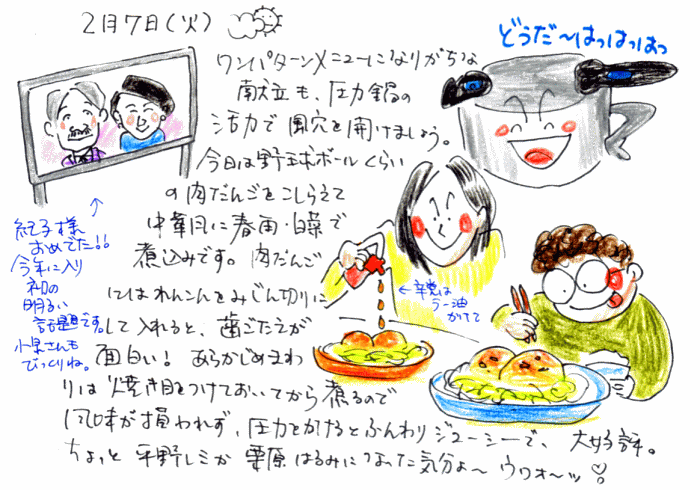 2月7日(火)
どうだ〜はっはっはっ
ワンパターンメニューになりがちな
献立も、圧力鍋の
活力で風穴を開けましょう。
今日は野球ボールくらい
の肉だんごをこしらえて
中華風に春雨・白菜で
煮込みです。肉だんご
にはれんこんをみじん切りに
して入れると、歯ごたえが
面白い！あらかじめまわ
りは焼き目をつけておいてから煮るので
風味が損われず、圧力をかけるとふんわりジューシーで、大好評。
ちょっと平野レミか栗原はるみになった気分よ〜ウフォ〜ッ♡
紀子様
おめでた!!
今年に入り
初の
明るい
話題です。
小泉さんも
びっくりね。
←辛党は
ラー油
かけて